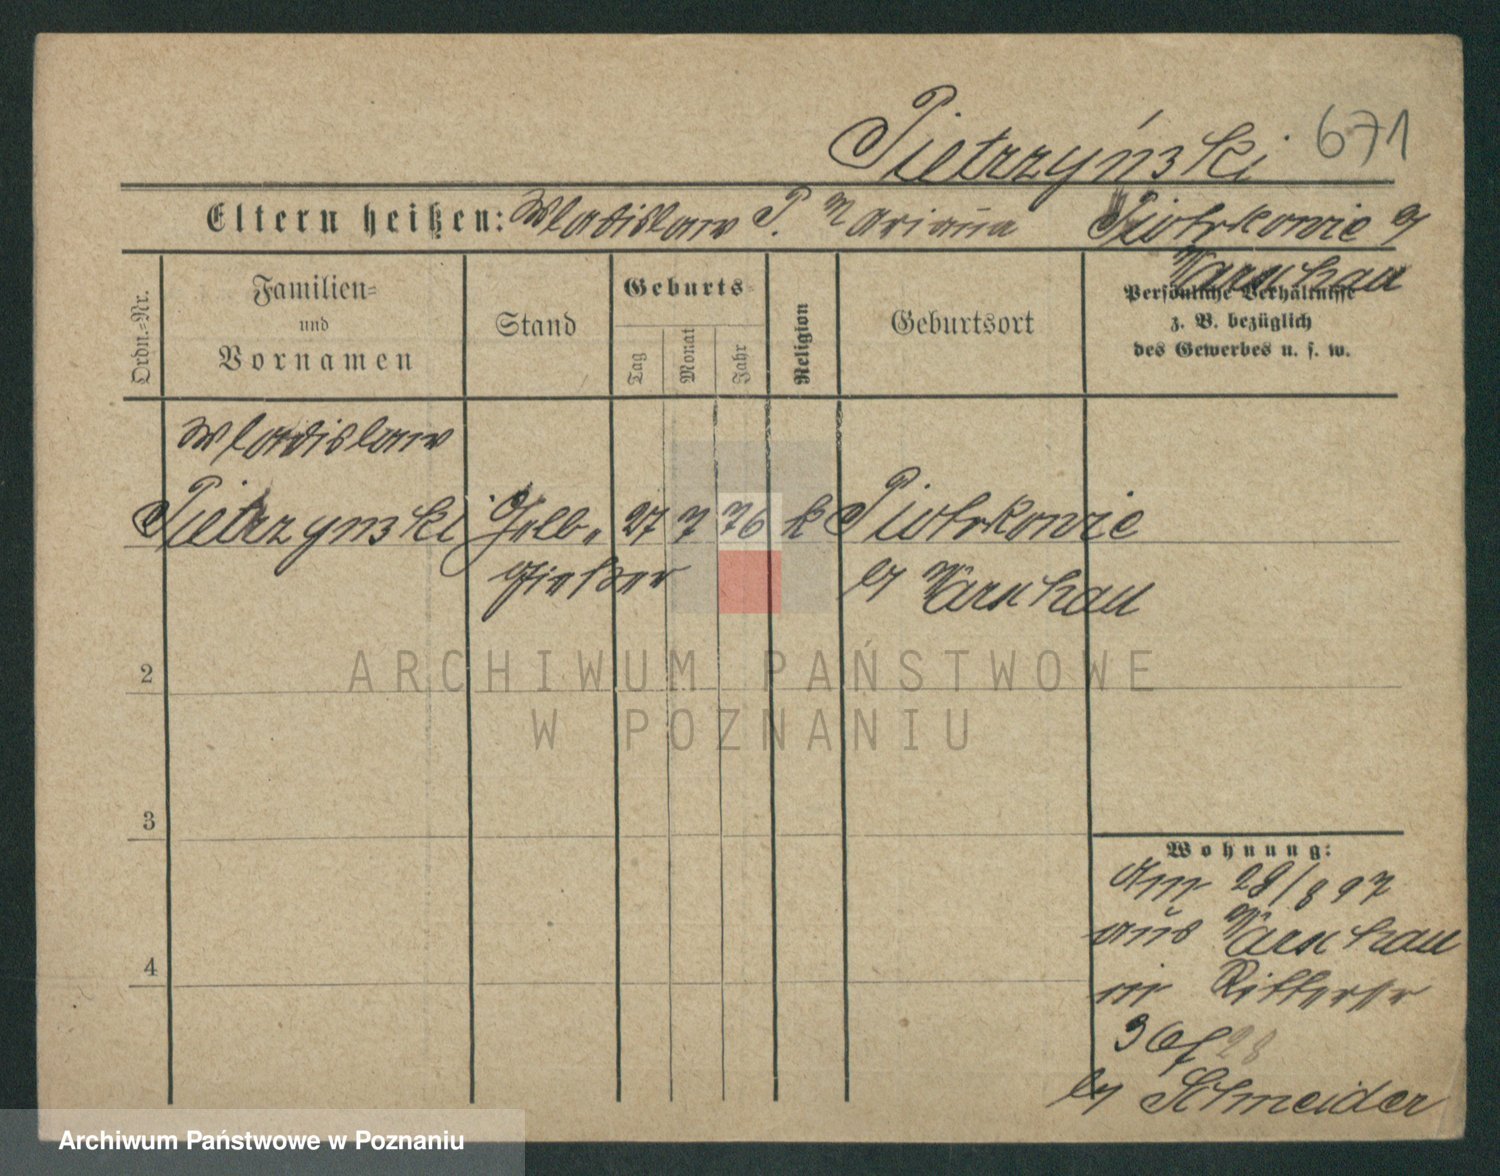 671
Pietrzyński
Eltern heißen: Wladislaw P. Mariana Piotrkowie
Warschau
Ordn.-Nr.
Familien-
und
Vornamen
Stand
Geburts-
Tag
Monat
Jahr
Religion
Geburtsort
Persönliche Verhältnisse
z. B. bezüglich
des Gewerbes u. s. w.
Wladislaw
Pietrzynski Gelb- 27 7 76 k Piotrkowie
gießer b/ Warschau
2
3
4
Wohnung:
28/8 97
aus Warschau
in Ritterstr
3 Hf 28
b/ Schneider
ARCHIWUM PAŃSTWOWE
W POZNANIU
Archiwum Państwowe w Poznaniu